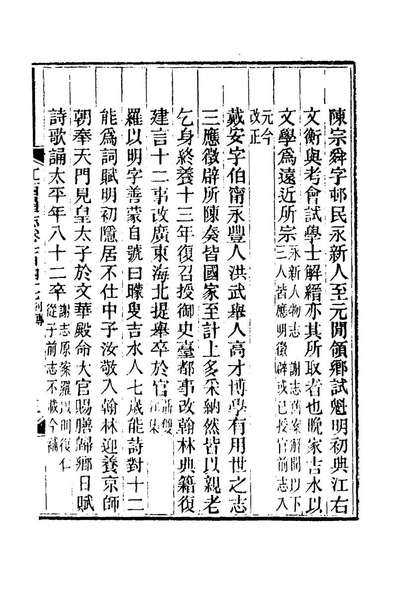 陳宗舜字邨民永新人至元間領鄉試魁明初典江右
文衡與考會試學士解縉亦其所取者也晚家吉水以
文學爲遠近所宗永新人物志 謝志舊案解開以下
三人皆應明徵辟或已授官前志入
元今
改正
戴安字伯甯永豐人洪武舉人高才博學有用世之志
三應徵辟所陳奏皆國家至計上多采納然皆以親老
乞身終養十三年復召授御史臺都事改翰林典籍復
建言十二事改廣東海北提舉卒於官
羅以明字善蒙自號曰矇叟吉水人七歲能詩對十二
能爲詞賦明初隱居不仕中子汝敬入翰林迎養京師
朝奉天門見皇太子於文華殿命大官賜膳歸鄉日賦
詩歌誦太平年八十二卒謝志原案羅以明復仁
從子前志不載今補